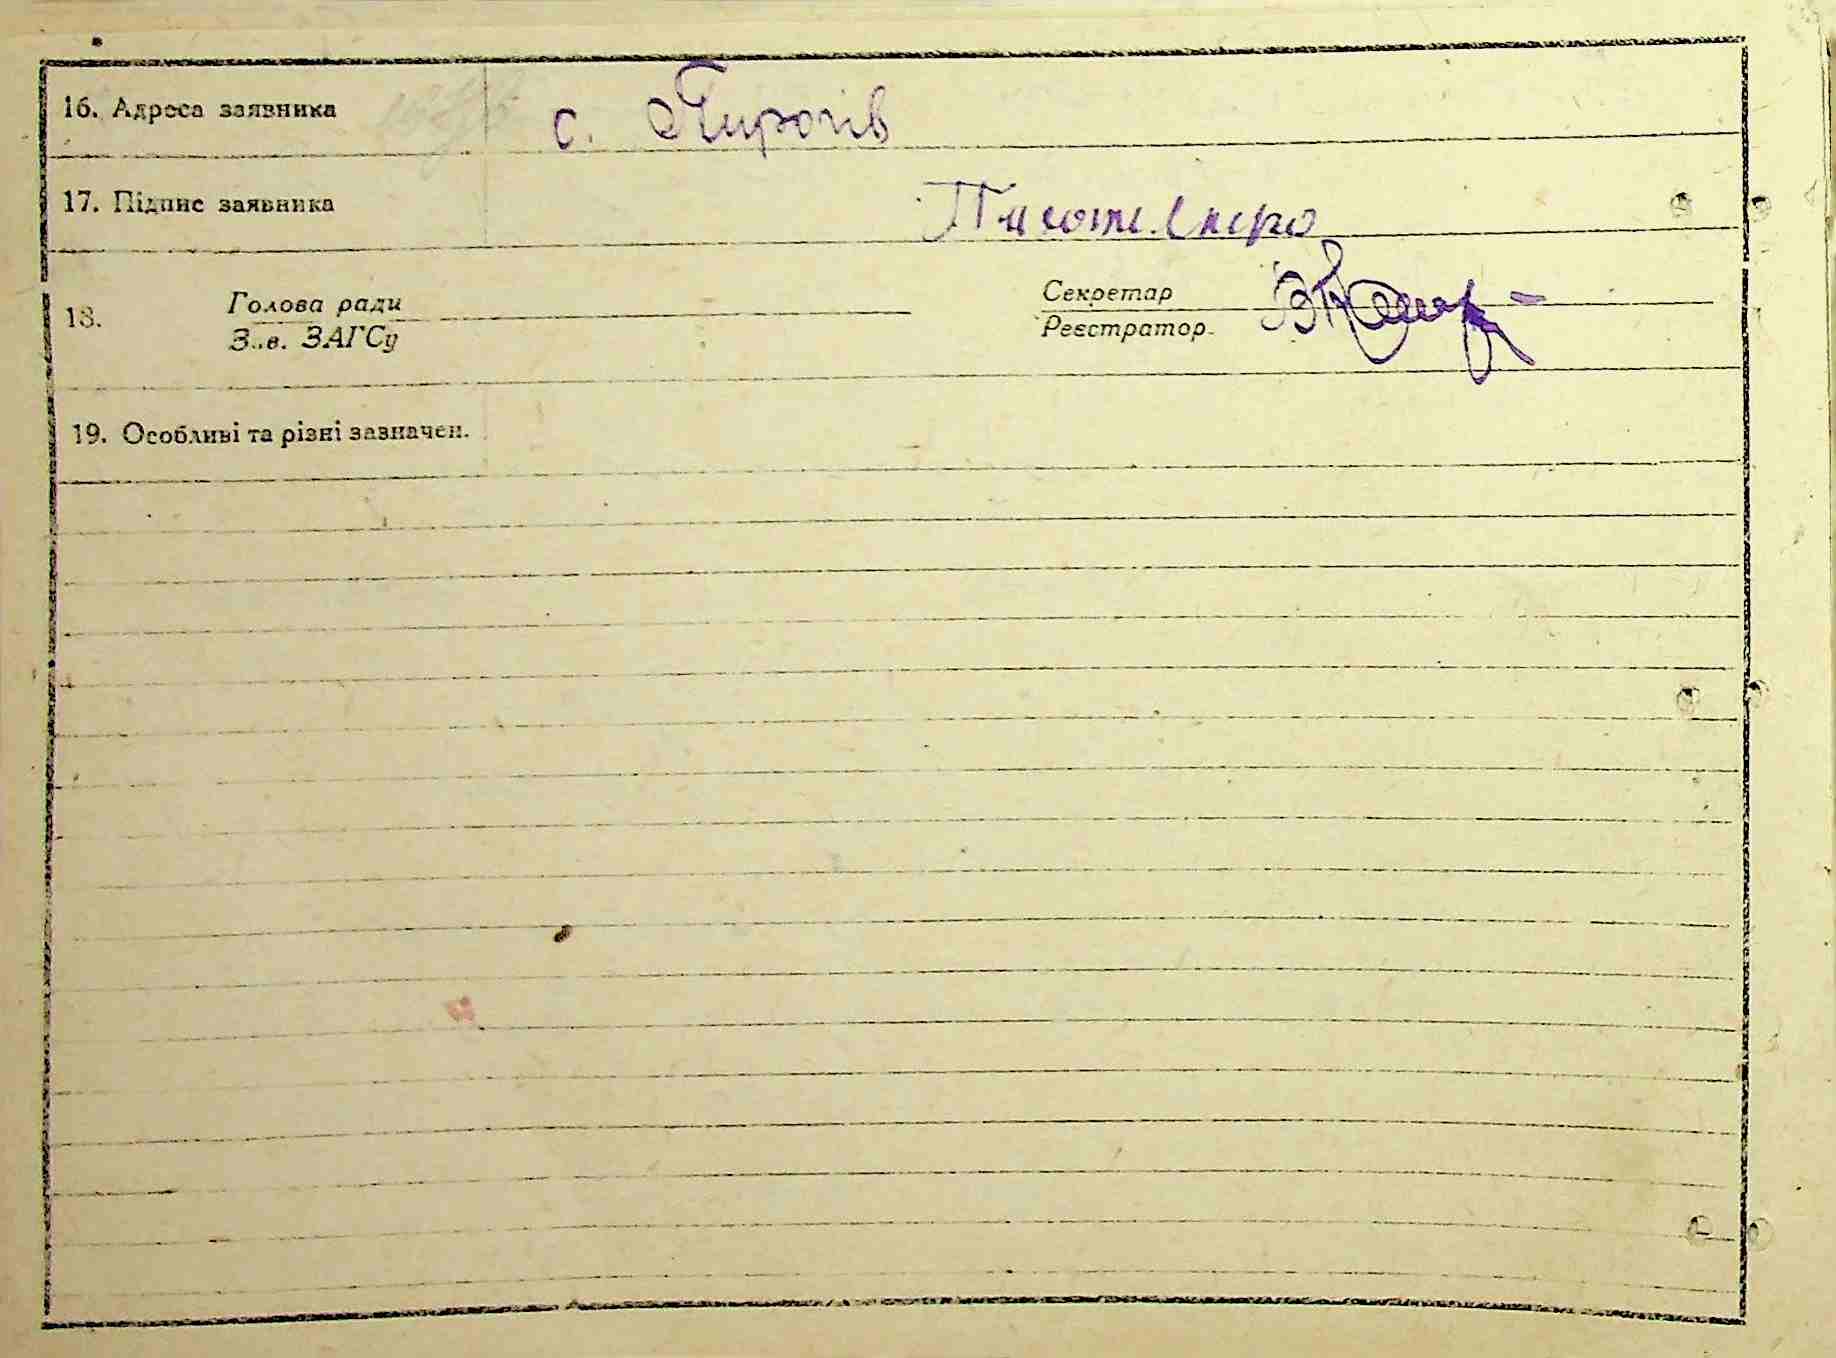 16. Адреса заявника с. Пирогів
17. Підпис заявника
18. Голова ради Секретар
Зав. ЗАГСу Реєстратор.
19. Особливі та різні зазначен.